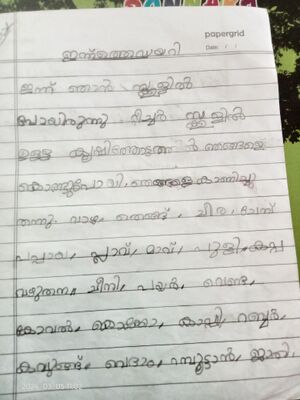 papergrid
Date: / /
ഇന്നത്തെഡയറി
ഇന്ന് ഞാൻ സ്കൂളിൽ
പോയിരുന്നു ടീച്ചർ സ്കൂളിൽ
ഉളള കൃഷിത്തോട്ടത്തിൽ ഞങ്ങളെ
കൊണ്ടുപോയി, ഞങ്ങളെ കാണിച്ചു
തന്നു. വാഴ, തെങ്ങ്, ചീര, ചേന
പപ്പായ, പ്ലാവ്, മാവ്, പുളി, കപ്പ
വഴുതന, ചീനി, പയർ, വെണ്ട,
കോവൽ, കൊക്കോ, കാപ്പി, റബ്ബർ,
കവുങ്ങ്, ബദാം, റമ്പൂട്ടാൻ, ജാതി,